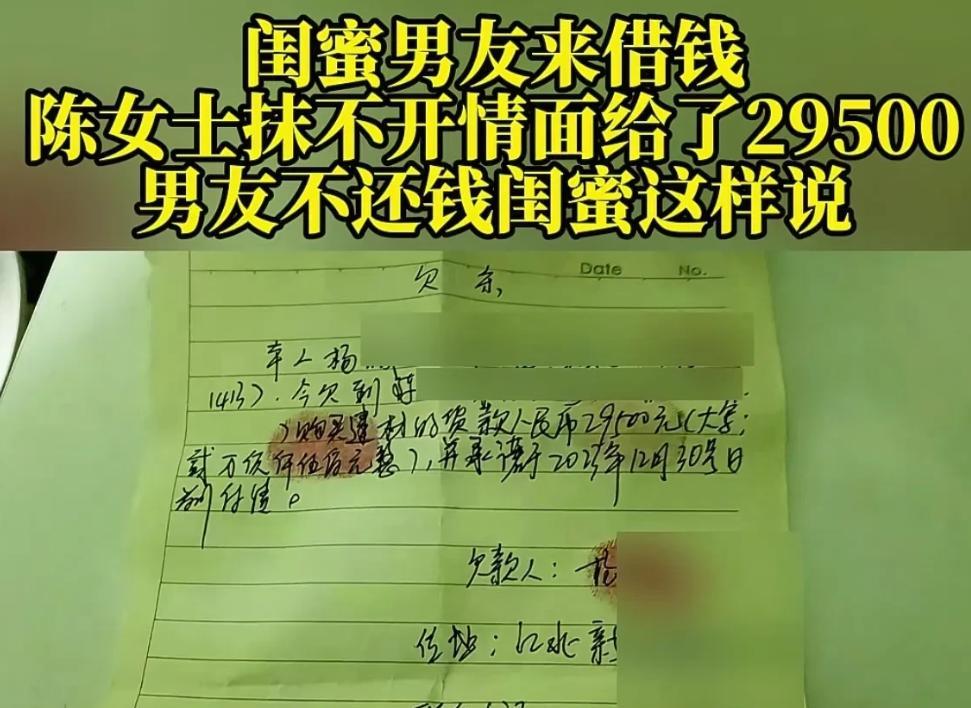 闺蜜男友来借钱
陈女士抹不开情面给了29500
男友不还钱闺蜜这样说
Date No.
欠条
本人杨
1413）.今欠到陈
）购买建材的货款人民币29500元（大字：
贰万玖仟伍佰元整），并承诺于2023年12月30号日
前付清。
欠款人：
住址：江兆新